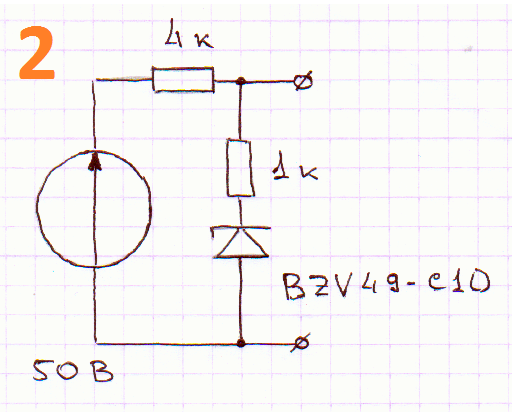 2
4к
1к
BZV49-C10
50В